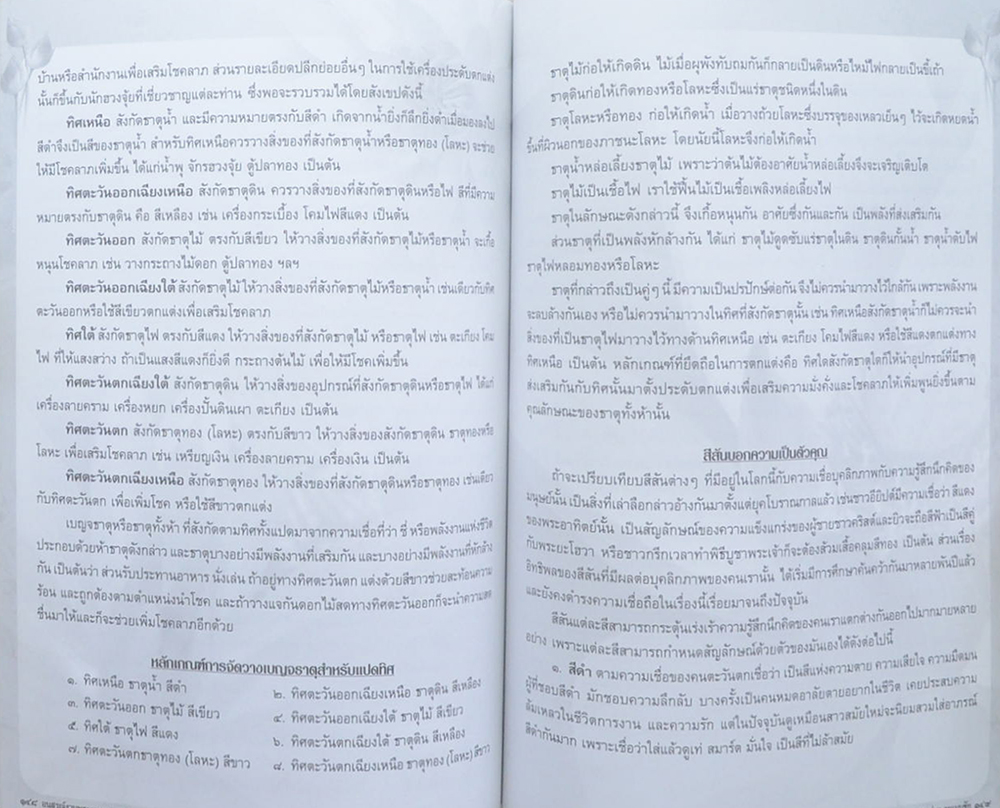 บ้านหรือสำนักงานเพื่อเสริมโชคลาภ ส่วนรายละเอียดปลีกย่อยอื่นๆ ในการใช้เครื่องประดับตกแต่ง
นั้นก็ขึ้นกับนักฮวงจุ้ยที่เชี่ยวชาญแต่ละท่าน ซึ่งพอจะรวบรวมได้โดยสังเขปดังนี้
ทิศเหนือ สังกัดธาตุน้ำ และมีความหมายตรงกับสีดำ เกิดจากน้ำยิ่งลึกยิ่งดำเมื่อมองลงไป
สีดำจึงเป็นสีของธาตุน้ำ สำหรับทิศเหนือควรวางสิ่งของที่สังกัดธาตุน้ำหรือธาตุทอง (โลหะ) จะช่วย
ให้มีโชคลาภเพิ่มขึ้น ได้แก่น้ำพุ จักรฮวงจุ้ย ตู้ปลาทอง เป็นต้น
ทิศตะวันออกเฉียงเหนือ สังกัดธาตุดิน ควรวางสิ่งของที่สังกัดธาตุดินหรือไฟ สีที่มีความ
หมายตรงกับธาตุดิน คือ สีเหลือง เช่น เครื่องกระเบื้อง โคมไฟสีแดง เป็นต้น
ทิศตะวันออก สังกัดธาตุไม้ ตรงกับสีเขียว ให้วางสิ่งของที่สังกัดธาตุไม้หรือธาตุน้ำ จะเกื้อ
หนุนโชคลาภ เช่น วางกระถางไม้ดอก ตู้ปลาทอง ฯลฯ
ทิศตะวันออกเฉียงใต้ สังกัดธาตุไม้ ให้วางสิ่งของที่สังกัดธาตุไม้หรือธาตุน้ำ เช่นเดียวกับทิศ
ตะวันออกหรือใช้สีเขียวตกแต่งเพื่อเสริมโชคลาภ
ทิศใต้ สังกัดธาตุไฟ ตรงกับสีแดง ให้วางสิ่งของที่สังกัดธาตุไม้ หรือธาตุไฟ เช่น ตะเกียง โคม
ไฟ ที่ให้แสงสว่าง ถ้าเป็นแสงสีแดงก็ยิ่งดี กระถางต้นไม้ เพื่อให้มีโชคเพิ่มขึ้น
ทิศตะวันตกเฉียงใต้ สังกัดธาตุดิน ให้วางสิ่งของอุปกรณ์ที่สังกัดธาตุดินหรือธาตุไฟ ได้แก่
เครื่องลายคราม เครื่องหยก เครื่องปั้นดินเผา ตะเกียง เป็นต้น
ทิศตะวันตก สังกัดธาตุทอง (โลหะ) ตรงกับสีขาว ให้วางสิ่งของสังกัดธาตุดิน ธาตุทองหรือ
โลหะ เพื่อเสริมโชคลาภ เช่น เหรียญเงิน เครื่องลายคราม เครื่องเงิน เป็นต้น
ทิศตะวันตกเฉียงเหนือ สังกัดธาตุทอง ให้วางสิ่งของที่สังกัดธาตุดินหรือธาตุทอง เช่นเดียว
กับทิศตะวันตก เพื่อเพิ่มโชค หรือใช้สีขาวตกแต่ง
เบญจธาตุหรือธาตุทั้งห้า ที่สังกัดตามทิศทั้งแปดมาจากความเชื่อที่ว่า ชี่ หรือพลังงานแห่งชีวิต
ประกอบด้วยห้าธาตุดังกล่าว และธาตุบางอย่างมีพลังงานที่เสริมกัน และบางอย่างมีพลังงานที่หักล้าง
กัน เป็นต้นว่า ส่วนรับประทานอาหาร นั่งเล่น ถ้าอยู่ทางทิศตะวันตก แต่งด้วยสีขาวช่วยสะท้อนความ
ร้อน และถูกต้องตามตำแหน่งนำโชค และถ้าวางแจกันดอกไม้สดทางทิศตะวันออกก็จะนำความสด
ชื่นมาให้และก็จะช่วยเพิ่มโชคลาภอีกด้วย
หลักเกณฑ์การจัดวางเบญจธาตุสำหรับแปดทิศ
๑. ทิศเหนือ ธาตุน้ำ สีดำ
๒. ทิศตะวันออกเฉียงเหนือ ธาตุดิน สีเหลือง
๓. ทิศตะวันออก ธาตุไม้ สีเขียว
๔. ทิศตะวันออกเฉียงใต้ ธาตุไม้ สีเขียว
๕. ทิศใต้ ธาตุไฟ สีแดง
๖. ทิศตะวันตกเฉียงใต้ ธาตุดิน สีเหลือง
๗. ทิศตะวันตกธาตุทอง (โลหะ) สีขาว
๘. ทิศตะวันตกเฉียงเหนือ ธาตุทอง (โลหะ) สีขาว
๑๔๘
ธาตุไม้ก่อให้เกิดดิน ไม้เมื่อผุพังทับถมกันก็กลายเป็นดินหรือไหม้ไฟกลายเป็นขี้เถ้า
ธาตุดินก่อให้เกิดทองหรือโลหะซึ่งเป็นแร่ธาตุชนิดหนึ่งในดิน
ธาตุโลหะหรือทอง ก่อให้เกิดน้ำ เมื่อวางถ้วยโลหะซึ่งบรรจุของเหลวเย็นๆ ไว้จะเกิดหยดน้ำ
ขึ้นที่ผิวนอกของภาชนะโลหะ โดยนัยนี้โลหะจึงก่อให้เกิดน้ำ
ธาตุน้ำหล่อเลี้ยงธาตุไม้ เพราะว่าต้นไม้ต้องอาศัยน้ำหล่อเลี้ยงจึงจะเจริญเติบโต
ธาตุไม้เป็นเชื้อไฟ เราใช้ฟืนไม้เป็นเชื้อเพลิงหล่อเลี้ยงไฟ
ธาตุในลักษณะดังกล่าวนี้ จึงเกื้อหนุนกัน อาศัยซึ่งกันและกัน เป็นพลังที่ส่งเสริมกัน
ส่วนธาตุที่เป็นพลังหักล้างกัน ได้แก่ ธาตุไม้ดูดซับแร่ธาตุในดิน ธาตุดินกั้นน้ำ ธาตุน้ำดับไฟ
ธาตุไฟหลอมทองหรือโลหะ
ธาตุที่กล่าวถึงเป็นคู่ๆ นี้ มีความเป็นปรปักษ์ต่อกัน จึงไม่ควรนำมาวางไว้ใกล้กัน เพราะพลังงาน
จะลบล้างกันเอง หรือไม่ควรนำมาวางในทิศที่สังกัดธาตุนั้น เช่น ทิศเหนือสังกัดธาตุน้ำก็ไม่ควรจะนำ
สิ่งของที่เป็นธาตุไฟมาวางไว้ทางด้านทิศเหนือ เช่น ตะเกียง โคมไฟสีแดง หรือใช้สีแดงตกแต่งทาง
ทิศเหนือ เป็นต้น หลักเกณฑ์ที่ยึดถือในการตกแต่งคือ ทิศใดสังกัดธาตุใดก็ให้นำอุปกรณ์ที่มีธาตุ
ส่งเสริมกันกับทิศนั้นมาตั้งประดับตกแต่งเพื่อเสริมความมั่งคั่งและโชคลาภให้เพิ่มพูนยิ่งขึ้นตาม
คุณลักษณะของธาตุทั้งห้านั้น
สีสันบอกความเป็นตัวคุณ
ถ้าจะเปรียบเทียบสีสันต่างๆ ที่มีอยู่ในโลกนี้กับความเชื่อบุคลิกภาพกับความรู้สึกนึกคิดของ
มนุษย์นั้น เป็นสิ่งที่เล่าลือกล่าวอ้างกันมาตั้งแต่ยุคโบราณกาลแล้ว เช่นชาวอียิปต์มีความเชื่อว่า สีแดง
ของพระอาทิตย์นั้น เป็นสัญลักษณ์ของความแข็งแกร่งของผู้ชายชาวคริสต์และยิวจะถือสีฟ้าเป็นสีคู่
กับพระยะโฮวา หรือชาวกรีกเวลาทำพิธีบูชาพระเจ้าก็จะต้องสวมเสื้อคลุมสีทอง เป็นต้น ส่วนเรื่อง
อิทธิพลของสีสันที่มีผลต่อบุคลิกภาพของคนเรานั้น ได้เริ่มมีการศึกษาค้นคว้ากันมาหลายพันปีแล้ว
และยังคงดำรงความเชื่อถือในเรื่องนี้เรื่อยมาจนถึงปัจจุบัน
สีสันแต่ละสีสามารถกระตุ้นเร่งเร้าความรู้สึกนึกคิดของคนเราแตกต่างกันออกไปมากมายหลาย
อย่าง เพราะแต่ละสีสามารถกำหนดสัญลักษณ์ด้วยตัวของมันเองได้ดังต่อไปนี้
๑. สีดำ ตามความเชื่อของคนตะวันตกเชื่อว่า เป็นสีแห่งความตาย ความเสียใจ ความมืดมน
ผู้ที่ชอบสีดำ มักชอบความลึกลับ บางครั้งเป็นคนหมดอาลัยตายอยากในชีวิต เคยประสบความ
ล้มเหลวในชีวิตการงาน และความรัก แต่ในปัจจุบันดูเหมือนสาวสมัยใหม่จะนิยมสวมใส่อาภรณ์
สีดำกันมาก เพราะเชื่อว่าใส่แล้วดูเท่ สมาร์ต มั่นใจ เป็นสีที่ไม่ล้าสมัย